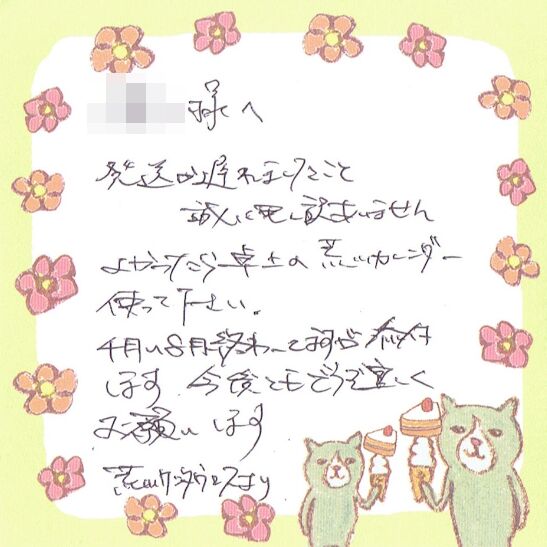 様へ
発送が遅れましたこと
誠に申し訳ありません
よかったら卓上の荒いカレンダー
使って下さい。
4月い8月終わってますが
します 今後ともどうぞ宜しく
お願いします
より